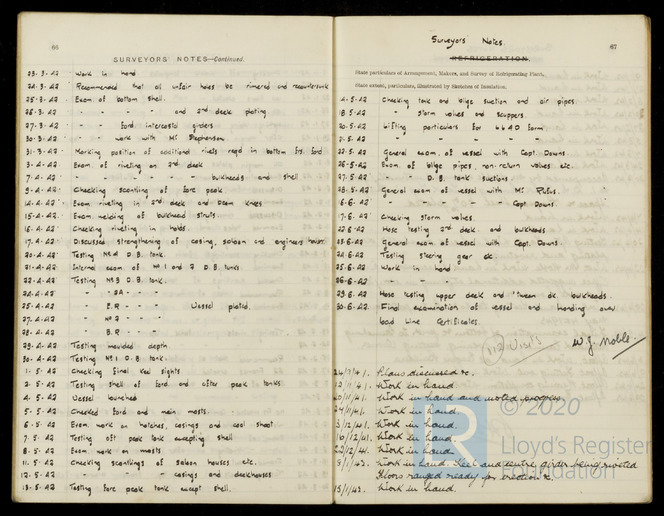 66
SURVEYORS' NOTES—Continued.
23-3-42 Work in hand
24-3-42 Recommended that all unfair holes be rimered and recountersunk
25-3-42 Exam of bottom shell.
26-3-42 " " " " and 2nd deck plating
27-3-42 " " ford intercostal girders
30-3-42 " " work with Mr Stephenson
31-3-42 Marking position of additional rivets reqd in bottom frs. ford
3-4-42 Exam. of riveting on 2nd deck
7-4-42 " " " " bulkheads and shell
9-4-42 Checking scantling of fore peak
14-4-42 Exam riveting in 2nd deck and beam knees
15-4-42 Exam. welding of bulkhead struts
16-4-42 Checking riveting in holds.
17-4-42 Discussed strengthening of casing, saloon and engineers house.
20-4-42 Testing No 4 D.B. tank.
21-4-42 Internal exam of No 1 and 2 D.B. tanks
22-4-42 Testing No 3 D.B. tank.
24-4-42 " 2A " " "
25-4-42 " E.R " " " Vessel plated.
27-4-42 " No 2 " " "
28-4-42 " B.R " " "
29-4-42 Testing moulded depth
30-4-42 Testing No 1 D.B tank.
1-5-42 Checking final keel sights
2-5-42 Testing shell of ford and after peak tanks
4-5-42 Vessel launched
5-5-42 Checked ford and main masts.
6-5-42 Exam. work on hatches, casings and coal shoot
7-5-42 Testing aft peak tank excepting shell
8-5-42 Exam work on masts
11-5-42 Checking scantlings of saloon houses etc.
12-5-42 " " " casings and deckhouses
13-5-42 Testing fore peak tank except shell.
Surveyors' Notes
67
REFRIGERATION.
State particulars of Arrangement, Makers, and Survey of Refrigerating Plant.
State extent, particulars, illustrated by Sketches of Insulation.
5-42 Checking tank and bilge suction and air pipes.
18-5-42 " storm valves and scuppers.
20-5-42 Lifting particulars for
5-42 " " " "
22-5-42 General exam. of vessel with Capt. Downs
26-5-42 Exam. of bilge pipes, non-return valves etc.
27-5-42 " " D.B. tank suctions.
28-5-42 General exam of vessel with Mr Rufus.
16-6-42 " " " " Capt Downs
17-6-42 Checking storm valves
22-6-42 Hose testing 2nd deck and bulkheads
23-6-42 General exam of vessel with Capt. Downs.
24-6-42 Testing steering gear etc.
25-6-42 Work in hand
26-6-42 " " "
29-6-42 Hose testing upper deck and 'tween dk. bulkheads.
30-6-42 Final examination of vessel and handing over
Load Line Certificates.
112 Visits
W.J. Noble.
Plans discussed &c.
11/41. Work in hand
11/41. Work in hand and noted progress
24/11/41. Work in hand.
3/12/41. Work in hand.
16/12/41. Work in hand.
12/41. Work in hand
9/1/42. Work in hand. Keel and centre girder being riveted
Floors ranged ready for erection &c.
15/1/42. Work in hand.
LR
© 2020
Lloyd's Register
Foundation